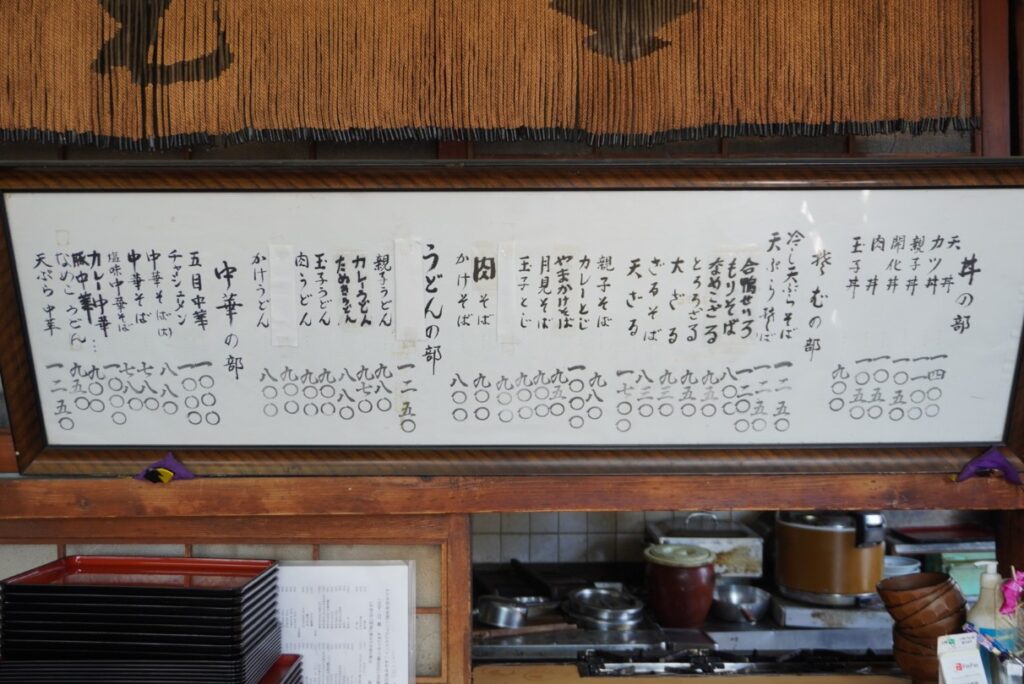 丼の部
天丼
一四〇〇
カツ丼
一一〇〇
親子丼
一〇五〇
開化丼
肉丼
玉子丼
九〇〇
むの部
冷し天ぷらそば
一二五〇
天ぷらそば
一二五〇
合鴨せいろ
一二〇〇
もりそば
八〇〇
なめこざる
九五〇
とろろざる
九五〇
大ざる
九三〇
ざるそば
八三〇
天ざる
一七〇〇
親子そば
九八〇
カレーとじ
一〇〇〇
やまかけそば
九五〇
月見そば
九〇〇
玉子とじ
九〇〇
九〇〇
肉そば
九〇〇
かけそば
八〇〇
うどんの部
一二五〇
親子うどん
九八〇
カレーうどん
九七〇
たぬきうどん
八八〇
玉子うどん
九〇〇
肉うどん
九〇〇
九〇〇
かけうどん
八〇〇
中華の部
五目中華
一〇〇〇
チャーシューメン
中華そば(肉)
八八〇
中華そば
七八〇
塩味中華そば
カレー中華
豚中華
九〇〇
なめこうどん
九五〇
天ぷら中華
一二五〇
PayPay